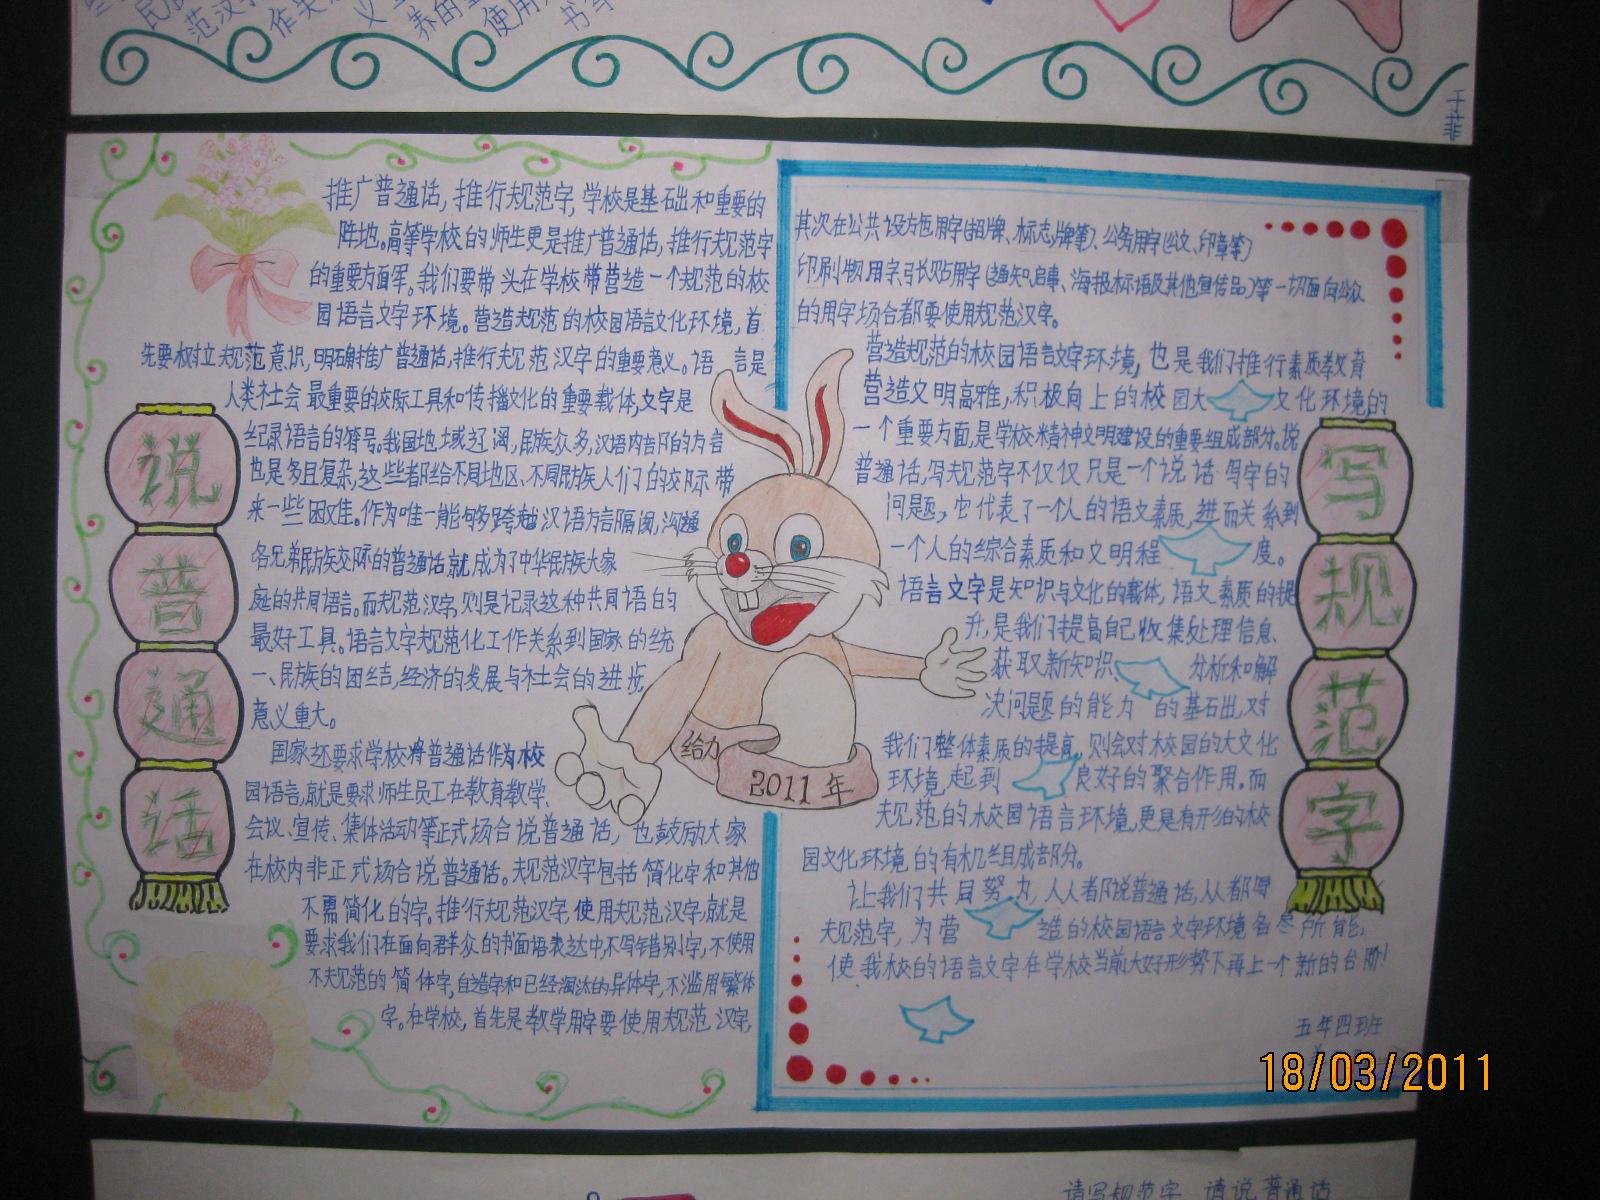 于菲
推广普通话,推行规范字,学校是基础和重要的
阵地。高等学校的师生更是推广普通话,推行规范字
的重要方面军。我们要带头在学校带营造一个规范的校
园语言文字环境。营造规范的校园语言文化环境,首
先要树立规范意识,明确推广普通话,推行规范汉字的重要意义。语言是
人类社会最重要的交际工具和传播文化的重要载体,文字是
纪录语言的符号。我国地域辽阔,民族众多,汉语内部的方言
也是多且复杂,这些都给不同地区、不同民族人们的交际带
来一些困难。作为唯一能够跨越汉语方言隔阂,沟通
各兄弟民族交际的普通话就成为了中华民族大家
庭的共同语言。而规范汉字,则是记录这种共同语的
最好工具。语言文字规范化工作关系到国家的统
一、民族的团结,经济的发展与社会的进步,
意义重大。
国家还要求学校将普通话作为校
园语言,就是要求师生员工在教育教学、
会议、宣传、集体活动等正式场合说普通话,也鼓励大家
在校内非正式场合说普通话。规范汉字包括简化字和其他
不需简化的字。推行规范汉字,使用规范汉字,就是
要求我们在面向群众的书面语表达中不写错别字,不使用
不规范的简体字,自造字和已经淘汰的异体字,不滥用繁体
字。在学校,首先是教学用字要使用规范汉字,
说普通话
给力
2011年
其次在公共设施用字(招牌、标志牌等)、公务用字(公文、印章等)
印刷物用字,张贴用字(通知,启事、海报标语及其他宣传品)等一切面向公众
的用字场合都要使用规范汉字。
营造规范的校园语言文字环境,也是我们推行素质教育
营造文明高雅,积极向上的校园大文化环境的
一个重要方面,是学校精神文明建设的重要组成部分。说
普通话,写规范字不仅仅只是一个说话写字的
问题,它代表了一个人的语文素质,进而关系到
一个人的综合素质和文明程度。
语言文字是知识与文化的载体,语文素质的提
升,是我们提高自己收集处理信息、
获取新知识、分析和解
决问题的能力的基石出,对
我们整体素质的提高,则会对校园的大文化
环境,起到良好的聚合作用。而
规范的校园语言环境,更是有形的校
园文化环境的有机组成部分。
让我们共同努力,人人都说普通话,人都写
规范字,为营造的校园语言文字环境各尽所能,
使我校的语言文字在学校当前大好形势下再上一个新的台阶!
五年四班
写规范字
18/03/2011
请写规范字 请说普通话